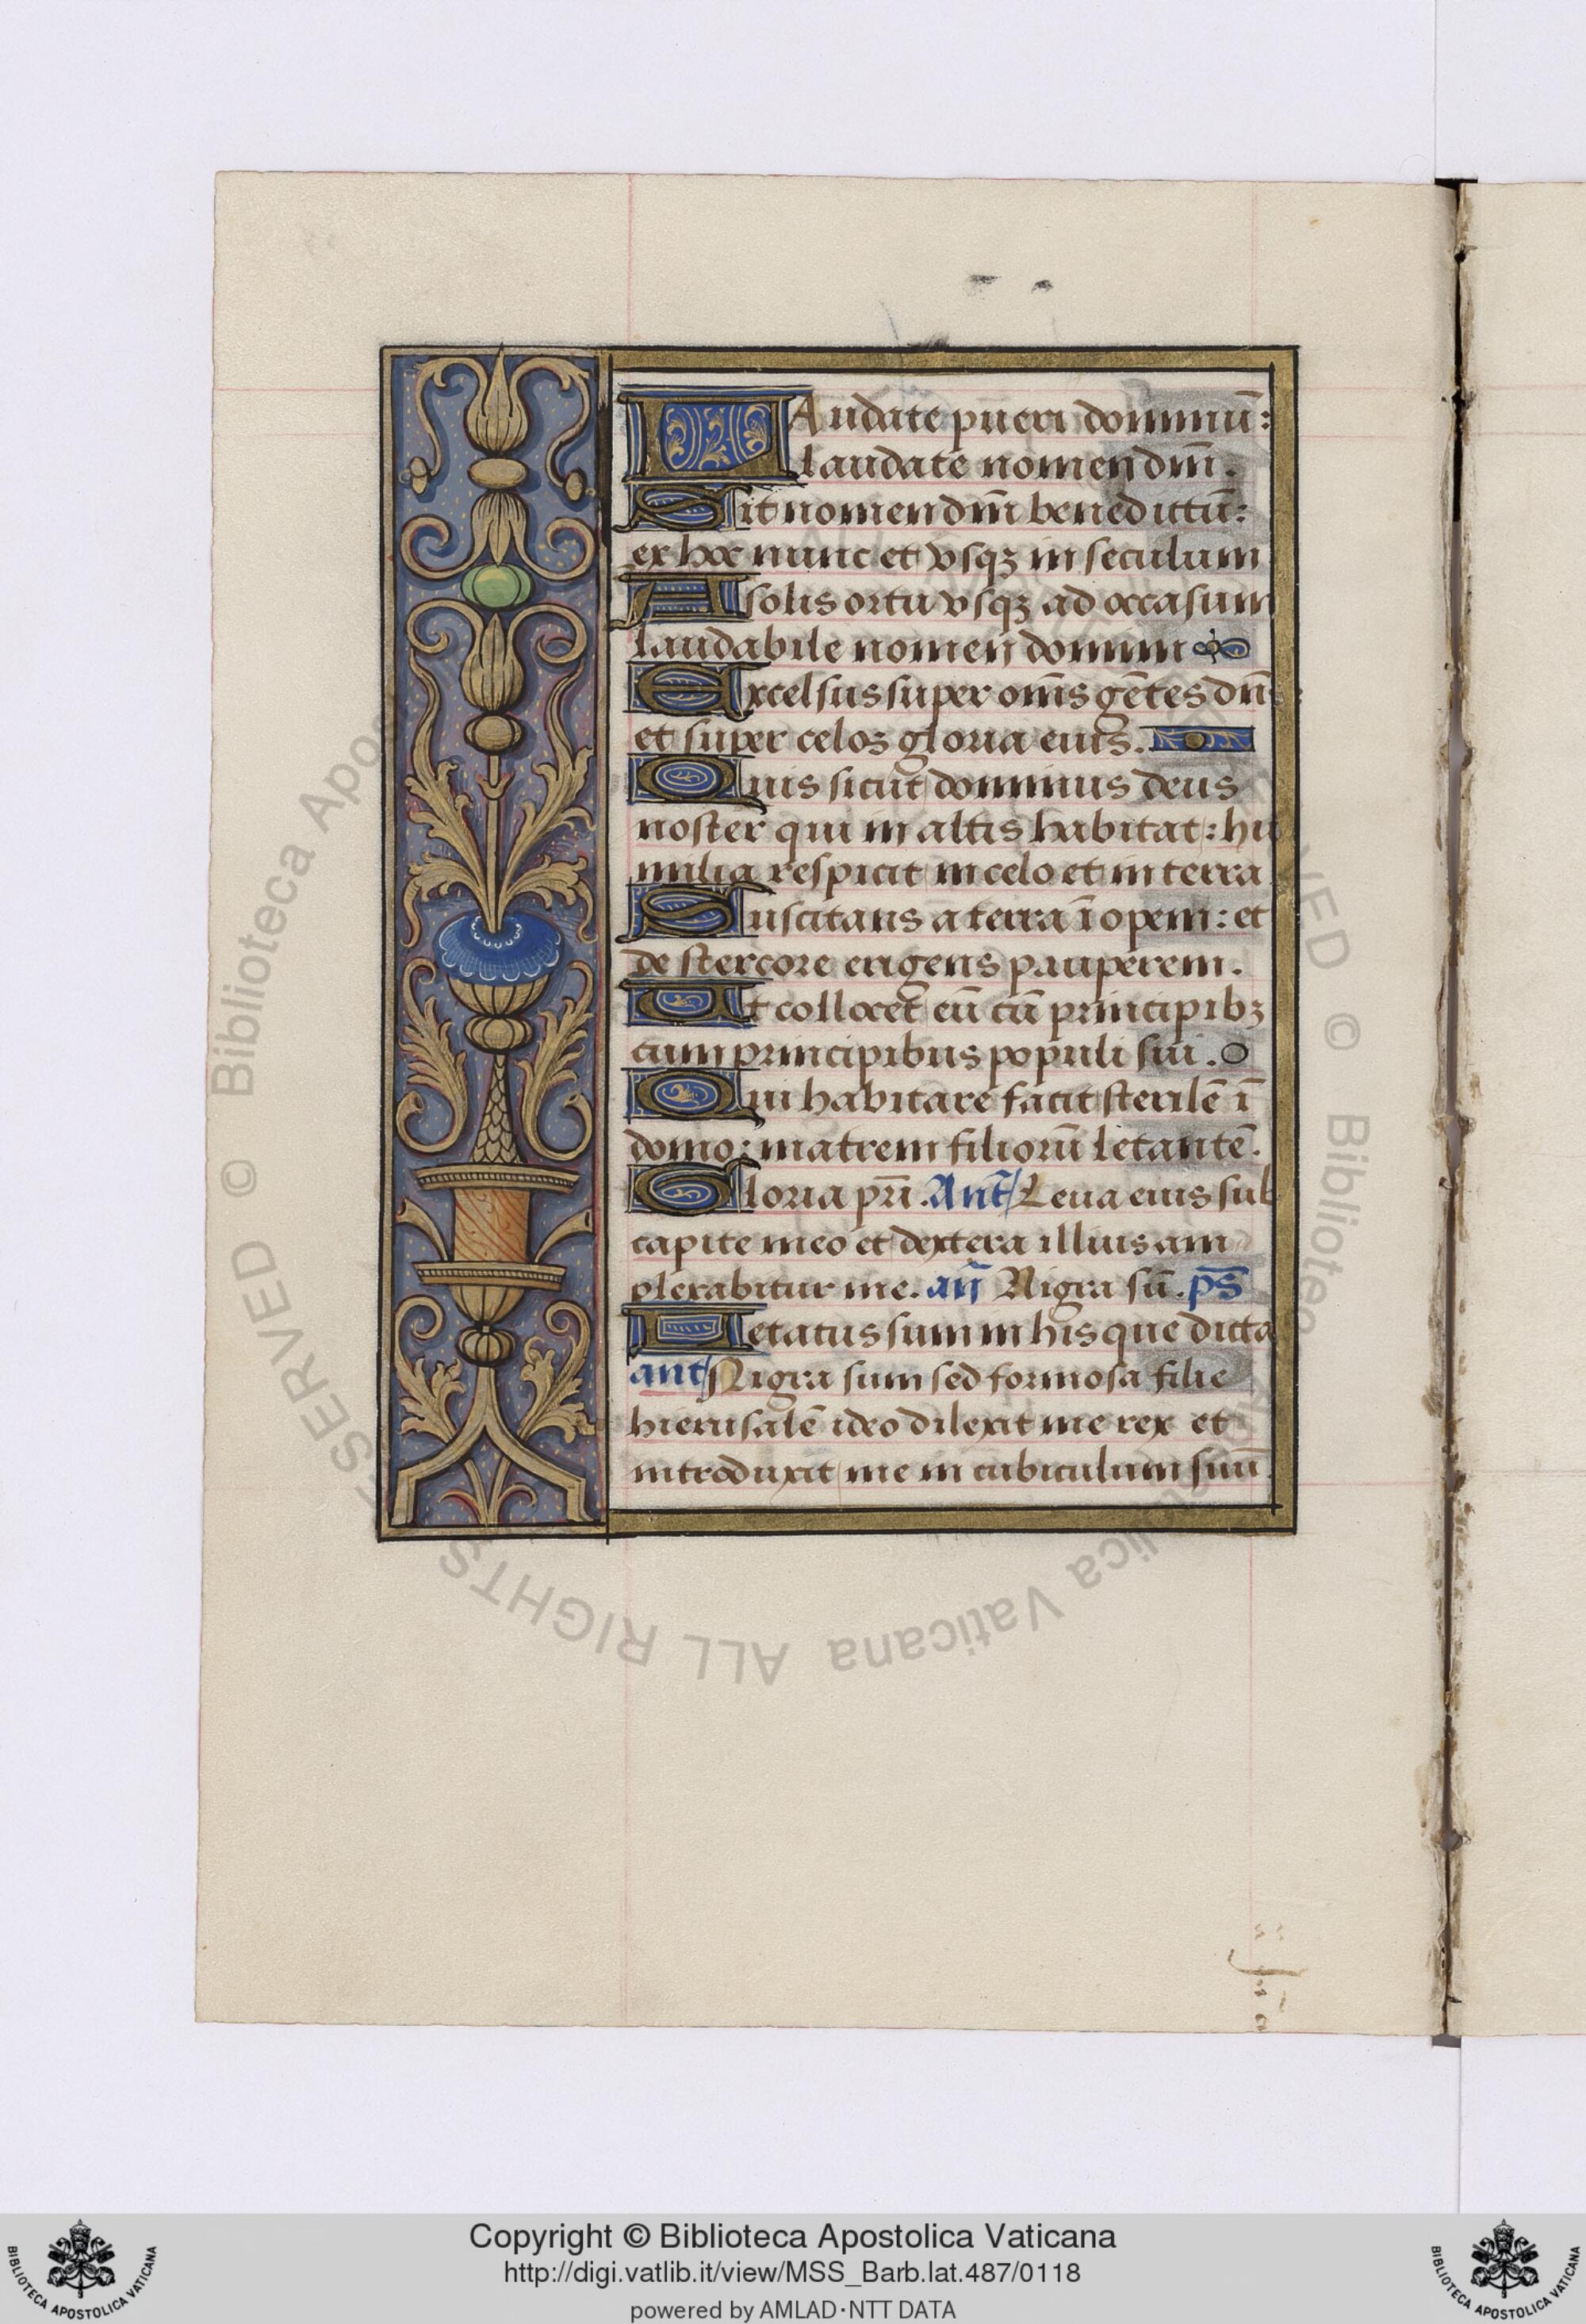 LAudate pueri dominū:
laudate nomen dm̄i.
Sit nomen dm̄i benedictū:
ex hoc nunc et vsqꝫ in seculum
A solis ortu vsqꝫ ad occasum
laudabile nomen domini
Excelsus super om̄s gētes dn̄s
et super celos gloria eius.
Quis sicut dominus deus
noster qui in altis habitat: hu
milia respicit in celo et in terra
Suscitans a terra īopem: et
de stercore erigens pauperem.
Ut collocet eū cū principibꝫ
cum principibus populi sui.
Qui habitare facit sterilē ī
domo: matrem filiorū letantē.
Gloria pr̄i. Ant̄ Leua eius sub
capite meo et dextera illius am
plexabitur me. an̄ Nigra sū. ps̄
Letatus sum in his que dicta
ant Nigra sum sed formosa filie
hierusalē ideo dilexit me rex et
introduxit me in cubiculum suū
© Biblioteca Apostolica Vaticana ALL RIGHTS RESERVED © Biblioteca
Copyright © Biblioteca Apostolica Vaticana
http://digi.vatlib.it/view/MSS_Barb.lat.487/0118
powered by AMLAD·NTT DATA
BIBLIOTECA APOSTOLICA VATICANA
BIBLIOTECA APOSTOLICA VATICANA